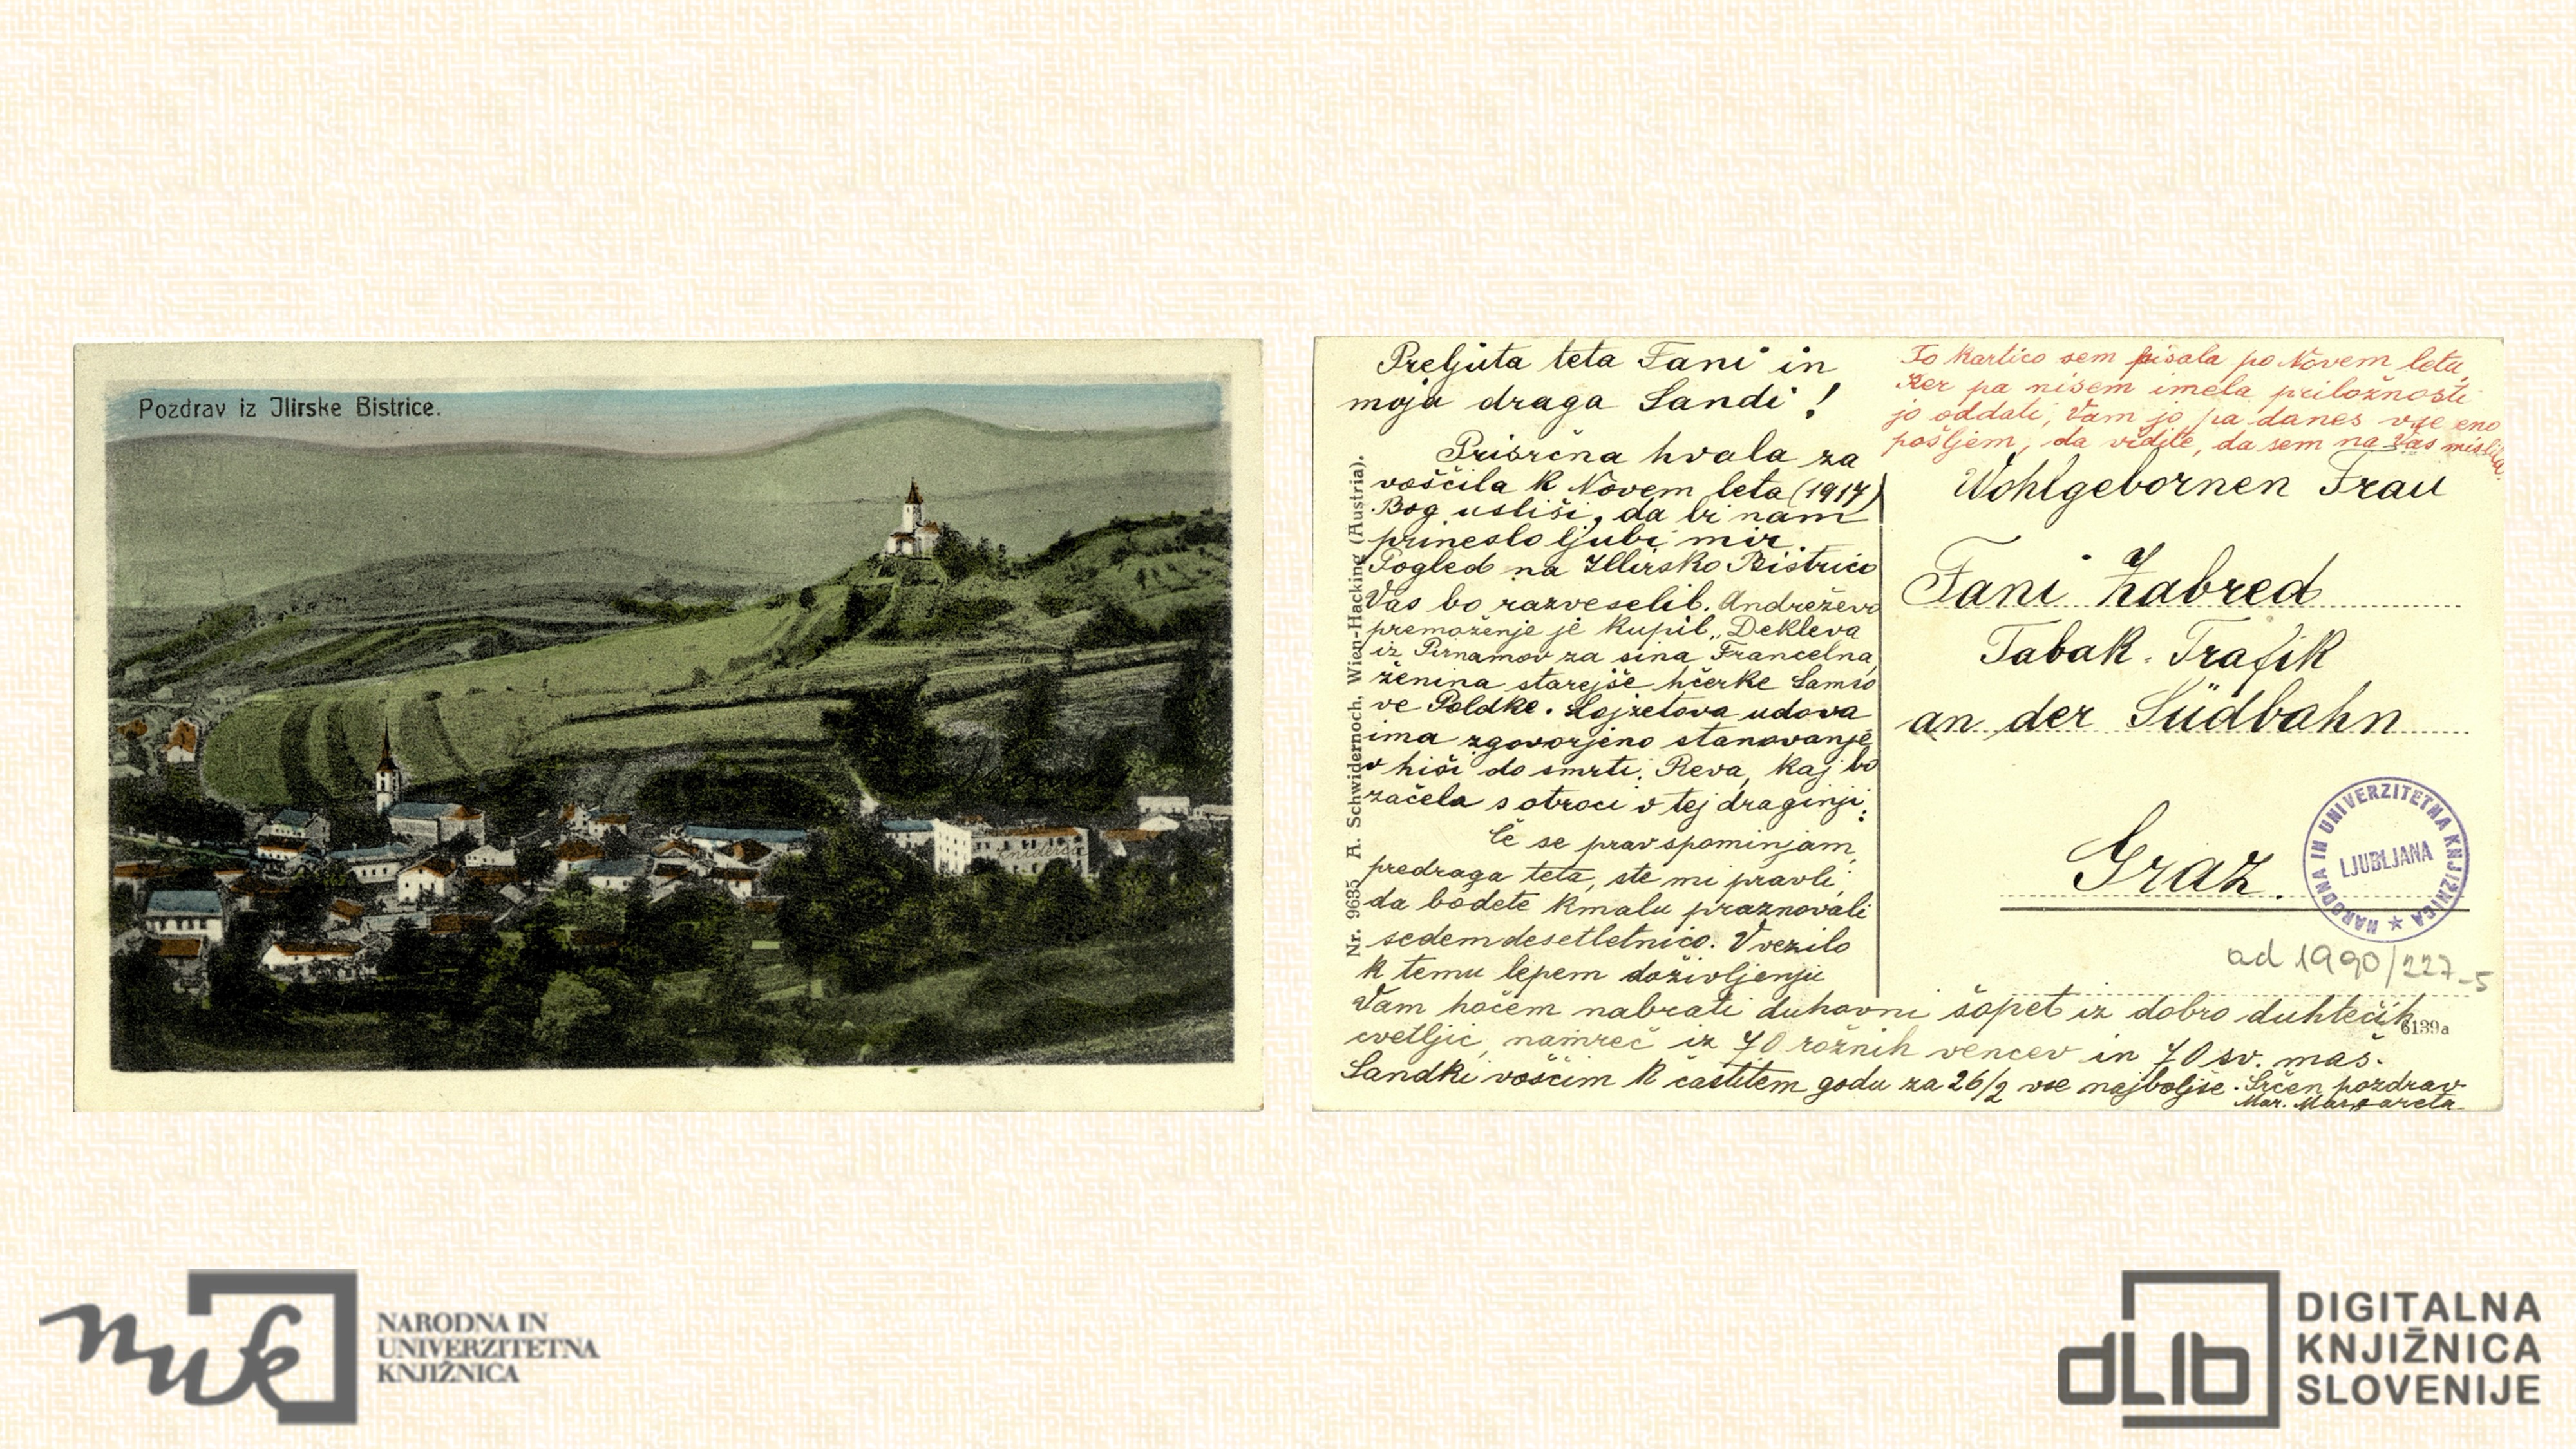 Pozdrav iz Ilirske Bistrice.
Preljuta teta Fani in
moja draga Sandi!
Prisrčna hvala za
voščila k Novem leta (1917)
Bog usliši, da bi nam
prineslo ljubi mir.
Pogled na Illirsko Bistrico
Vas bo razveselil. Andreževo
premoženje je kupil „Dekleva
iz Pirnamov za sina Francelna,
ženina starejše hčerke Samso
ve Poldke. Lojzetova udova
ima zgovorjeno stanovanje
v hiši do smrti. Reva, kaj bo
začela s otroci v tej draginji.
Če se prav spominjam,
predraga teta, ste mi pravli,
da bodete kmalu praznovali
sedemdesetletnico. V vezilo
k temu lepem doživljenju
Vam hočem nabrati duhovni šopet iz dobro duhtečih
cvetljic, namreč iz 70 rožnih vencev in 70 sv. maš.
Sandki voščim k častitem godu za 26/2 vse najboljše. Srčen pozdrav
Mar. Margareta
Nr. 9635 A. Schwidernoch, Wien-Hacking (Austria).
To kartico sem pisala po Novem letu,
Ker pa nisem imela priložnosti
jo oddati, Vam jo pa danes vse eno
pošljem, da vidite, da sem na Vas mislila.
Wohlgebornen Frau
Fani Zabred
Tabak-Trafik
an der Südbahn
Graz.
NARODNA IN UNIVERZITETNA KNJIŽNICA ★
LJUBLJANA
ad 1990/227-5
6139a
nuk
NARODNA IN
UNIVERZITETNA
KNJIŽNICA
dLIb
DIGITALNA
KNJIŽNICA
SLOVENIJE